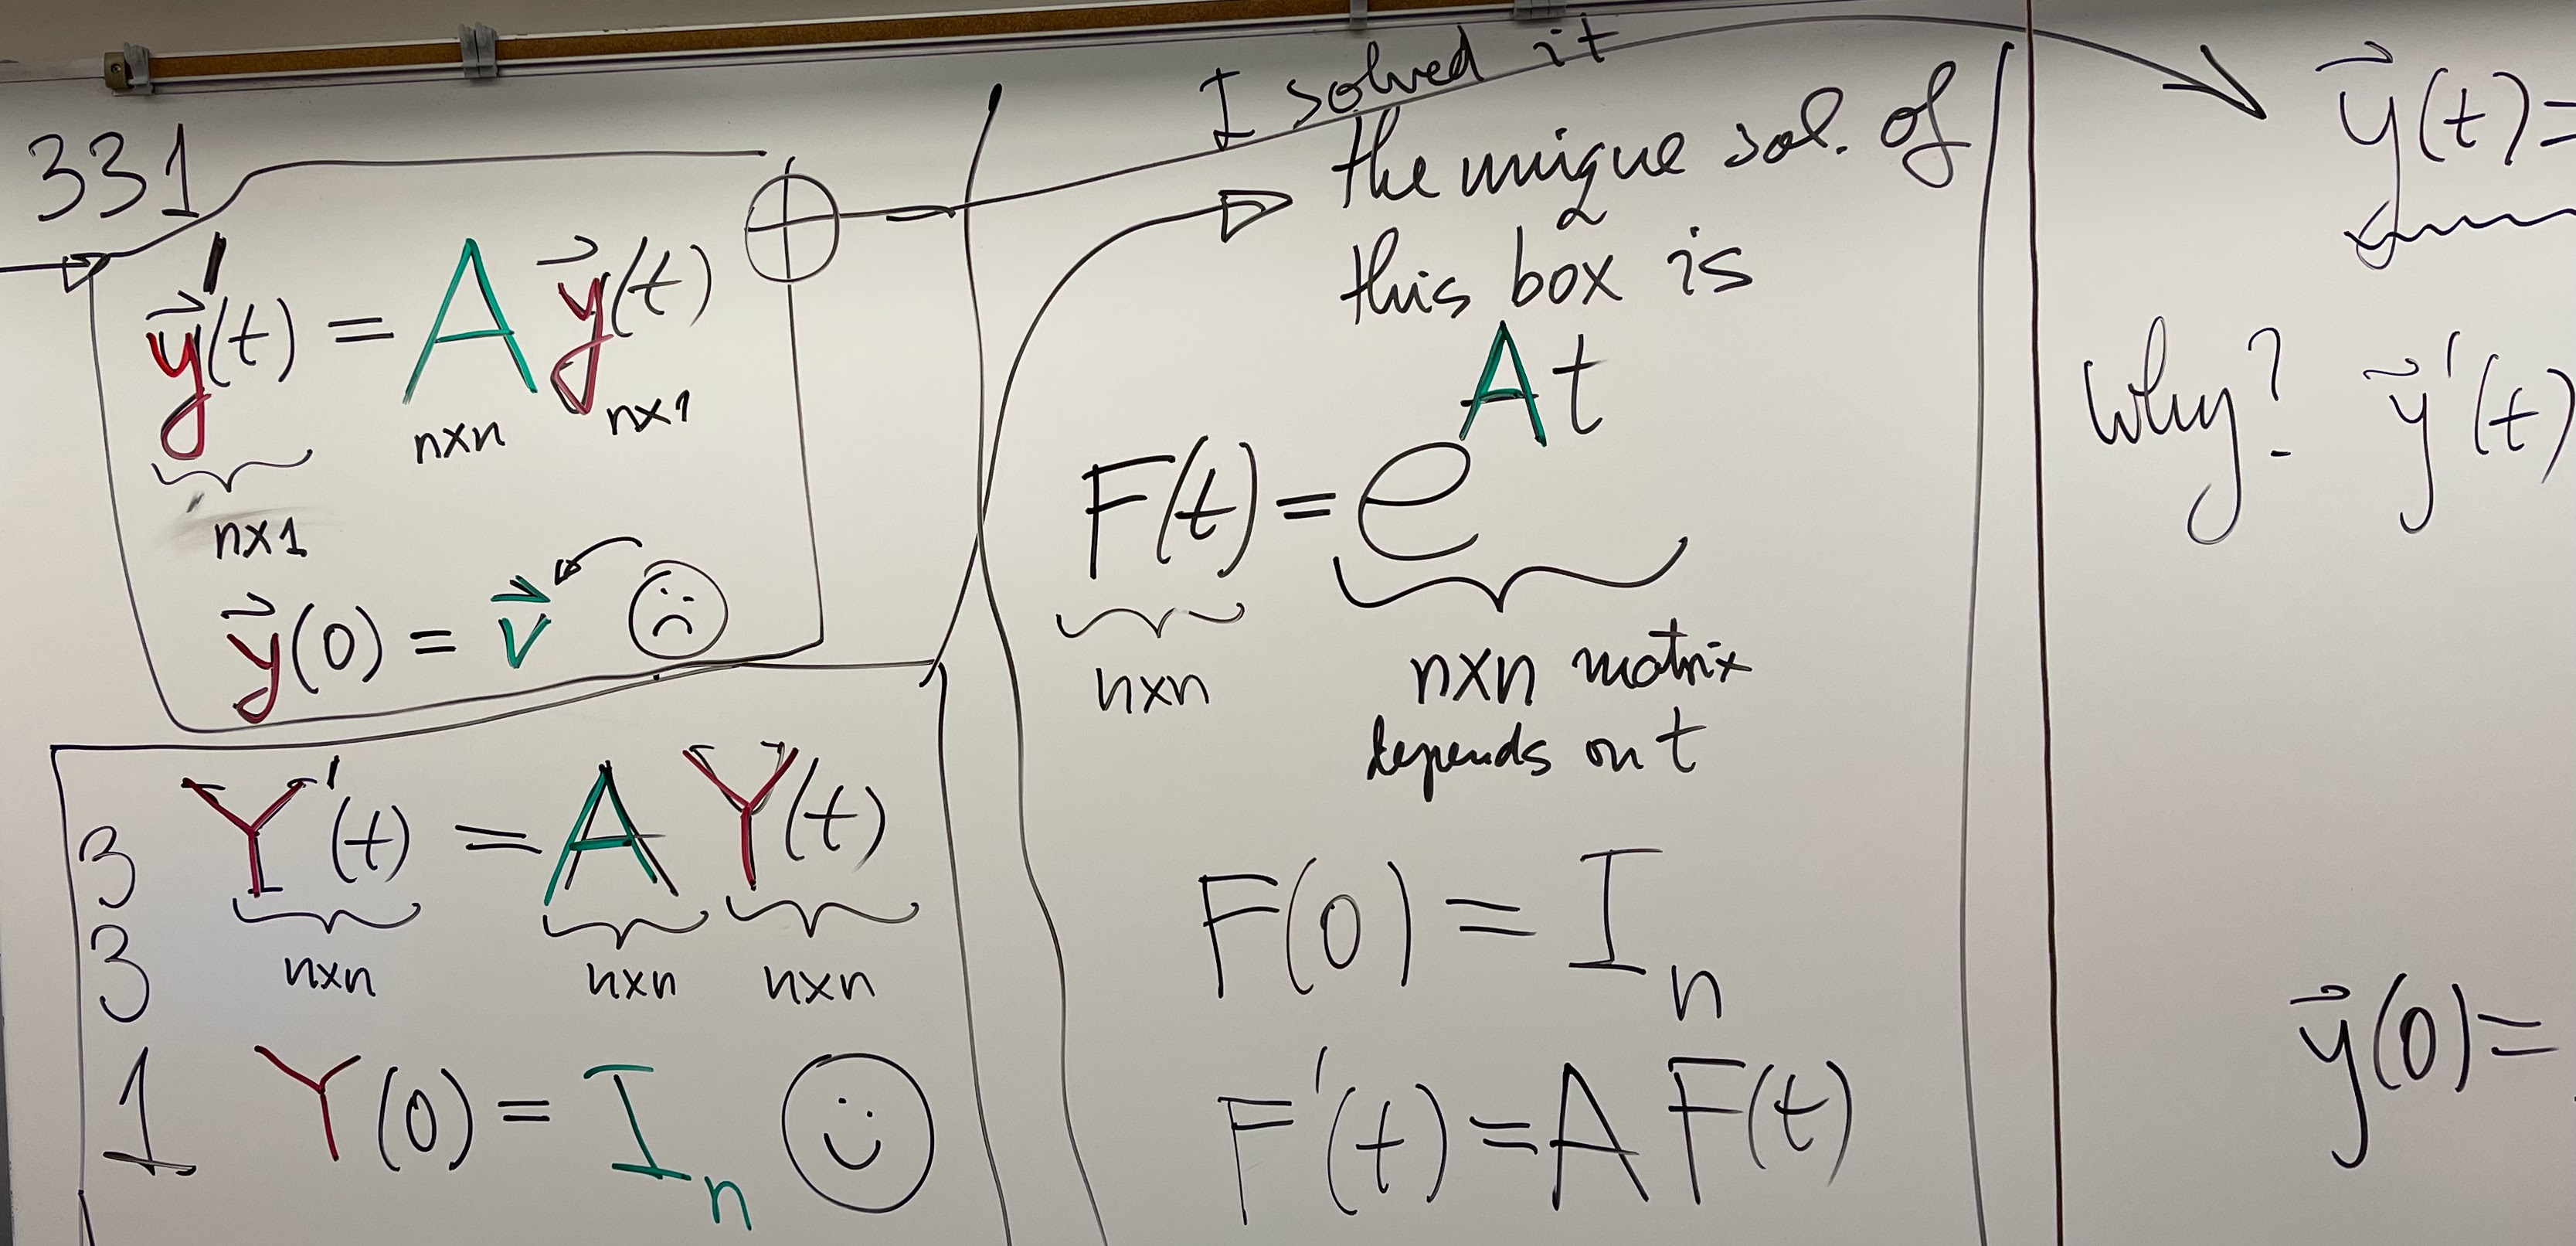 331
y⃗'(t) = A y⃗(t)
n×n n×1
n×1
y⃗(0) = v⃗
3 Y'(t) = A Y(t)
3 n×n n×n n×n
1 Y(0) = I_n
I solved it
the unique sol. of
this box is
F(t) = e^{At}
n×n n×n matrix
depends on t
F(0) = I_n
F'(t) = A F(t)
y⃗(t) =
Why? y⃗'(t)
y⃗(0) =